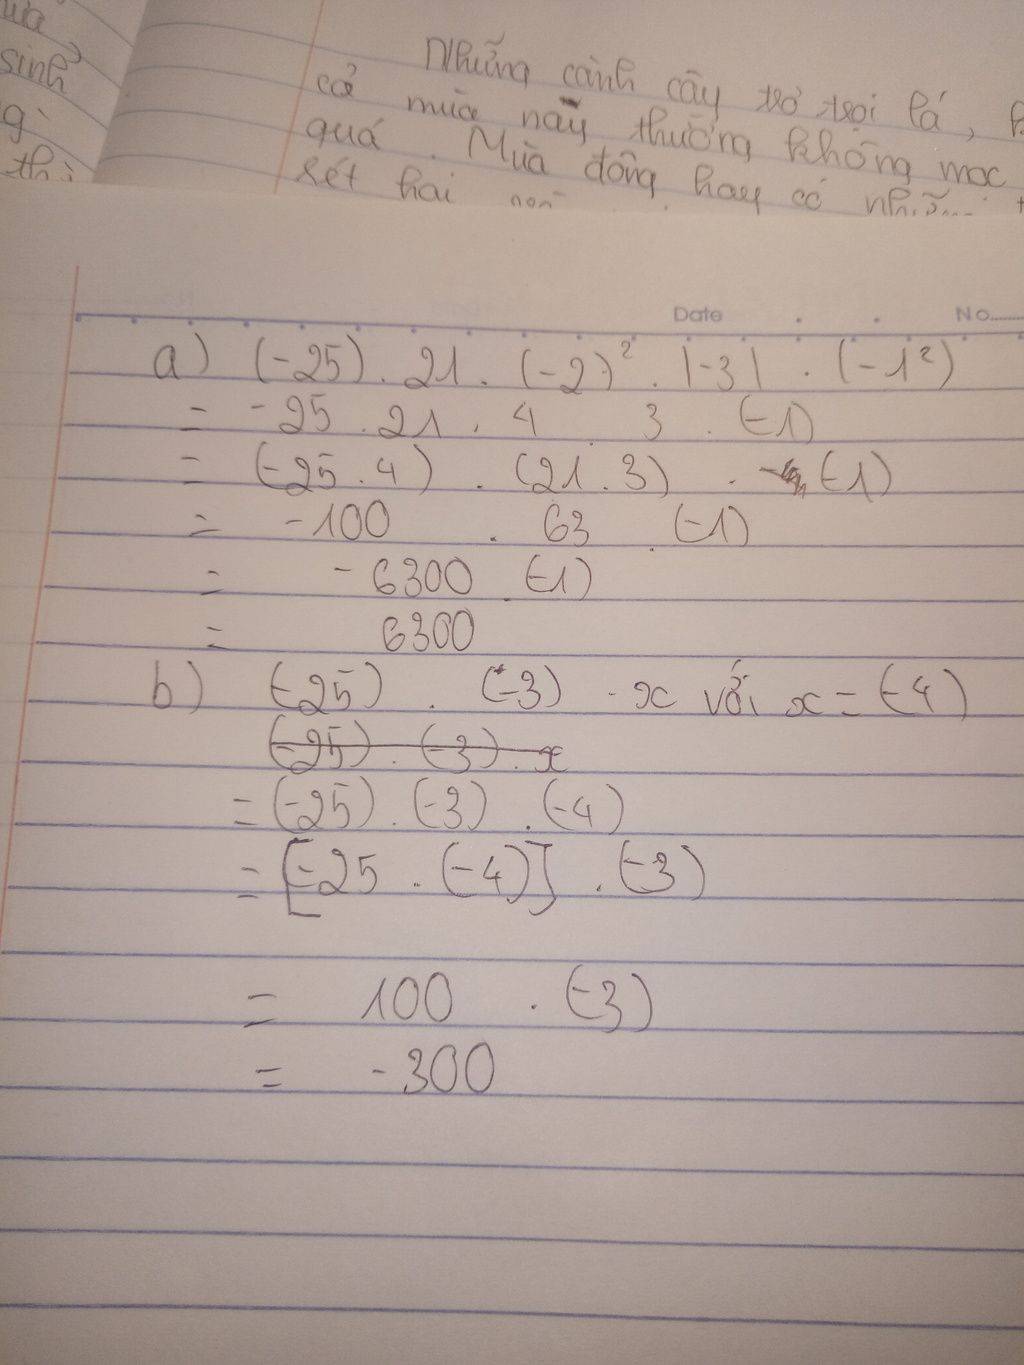 sinh
Những cành cây trơ trọi lá,
cả mùa này thường không mọc
quá. Mùa đông hay có
sét hai
Date No.
a) (-25) . 21 . (-2)² . |-3| . (-1²)
= -25 . 21 . 4 . 3 . (-1)
= (-25 . 4) . (21 . 3) . (-1)
= -100 . 63 . (-1)
= -6300 . (-1)
= 6300
b) (-25) . (-3) . x với x = (-4)
(-25) . (-3) . x
= (-25) . (-3) . (-4)
= [-25 . (-4)] . (-3)
= 100 . (-3)
= -300